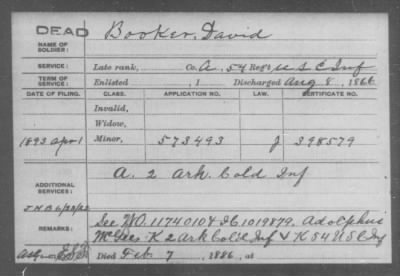 DEAD
NAME OF SOLDIER: Booker, David
SERVICE: Late rank, Co. A, 54 Reg't U S C Inf
TERM OF SERVICE: Enlisted , 1 Discharged Aug 8, 1866
DATE OF FILING. CLASS. APPLICATION NO. LAW. CERTIFICATE NO.
Invalid,
Widow,
1893 Apr 1 Minor, 573493 J 398579
ADDITIONAL SERVICES: A. 2 Ark. Cold Inf
REMARKS: See WO. 1174010 + IC 1019879. Adolphus
McGee K 2 Ark Col'd Inf & K 54 U S C Inf
Died Feb 7, 1886, at